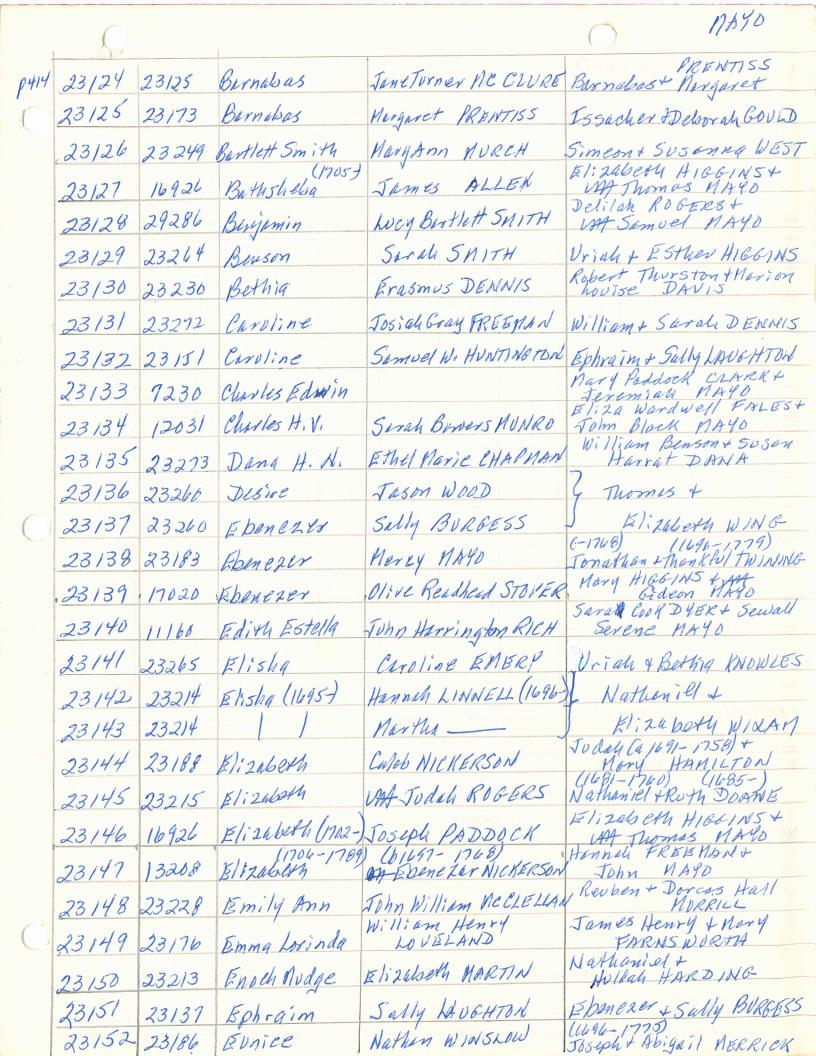 MAYO
p414 23124 23125 Barnabas Jane Turner MC CLURE Barnabas + Margaret PRENTISS
23125 23173 Barnabas Margaret PRENTISS Issacher + Deborah GOULD
23126 23249 Bartlett Smith Mary Ann MURCH Simeon + Susanna WEST
23127 16926 Bathsheba (1705-) James ALLEN Elizabeth HIGGINS + Thomas MAYO
23128 29286 Benjamin Lucy Bartlett SMITH Delilah ROGERS + Samuel MAYO
23129 23264 Benson Sarah SMITH Uriah + Esther HIGGINS
23130 23230 Bethia Erasmus DENNIS Robert Thurston + Marion Louise DAVIS
23131 23272 Caroline Josiah Gray FREEMAN William + Sarah DENNIS
23132 23151 Caroline Samuel W. HUNTINGTON Ephraim + Sally LAUGHTON
23133 7230 Charles Edwin Mary Paddock CLARK + Jeremiah MAYO
23134 12031 Charles H.V. Sarah Bowers MUNRO Eliza Wardwell FALES + John Black MAYO
23135 23273 Dana H. N. Ethel Marie CHAPMAN William Benson + Susan Harrat DANA
23136 23260 Desire Jason WOOD } Thomas +
23137 23260 Ebenezer Sally BURGESS Elizabeth WING
23138 23183 Ebenezer Mercy MAYO (-1768) (1696-1779) Jonathan + Thankful TWINING
23139 17020 Ebenezer Olive Readhead STOVER Mary HIGGINS + Gideon MAYO
23140 11160 Edith Estella John Harrington RICH Sarah Cook DYER + Sewall Serene MAYO
23141 23265 Elisha Caroline EMERY Uriah + Bethia KNOWLES
23142 23214 Elisha (1695-) Hannah LINNELL (1696-) } Nathaniel +
23143 23214 | | Martha —— Elizabeth WIXAM
23144 23188 Elizabeth Caleb NICKERSON Judah (Ca 1691-1758) + Mary HAMILTON
23145 23215 Elizabeth Judah ROGERS (1681-1760) (1685-) Nathaniel + Ruth DOANE
23146 16926 Elizabeth (1702-) Joseph PADDOCK Elizabeth HIGGINS + Thomas MAYO
23147 13208 Elizabeth (1706-1789) (b1697-1768) Ebenezer NICKERSON Hannah FREEMAN + John MAYO
23148 23228 Emily Ann John William McCLELLAN Reuben + Dorcas Hall MORRILL
23149 23176 Emma Lorinda William Henry LOVELAND James Henry + Mary FARNSWORTH
23150 23213 Enoch Mudge Elizabeth MARTIN Nathaniel + Huldah HARDING
23151 23137 Ephraim Sally LAUGHTON Ebenezer + Sally BURGESS
23152 23186 Eunice Nathan WINSLOW (1696-1775) Joseph + Abigail MERRICK